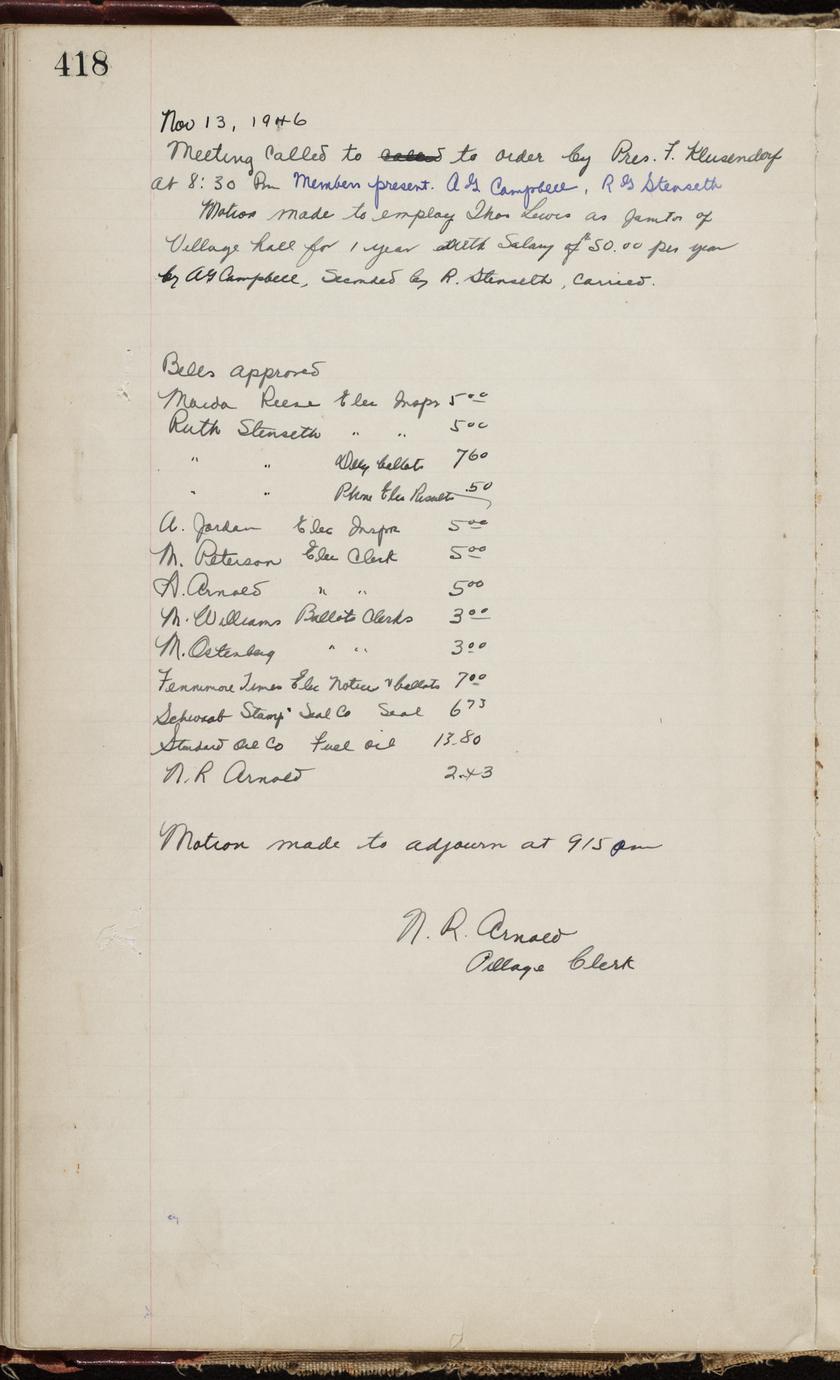 418
Nov 13, 1946
Meeting Called to called to order by Pres. F. Klusendorf
at 8:30 Pm Members present. A G Campbell, R G Stenseth
Motion made to employ Thos Lewis as Janitor of
Village hall for 1 year with Salary of $50.00 per year
by A G Campbell, Seconded by R. Stenseth, Carried.
Bills approved
Maida Reese Elec Inspr 5 00
Ruth Stenseth " " 5 00
" " Dlvy ballots 7 60
" " Phone Elec Results .50
A. Jordan Elec Inspr 5 00
M. Peterson Elec Clerk 5 00
H. Arnold " " 5 00
M. Williams Ballots Clerks 3 00
M. Ostenberg " " 3 00
Fennimore Times Elec Notice & ballots 7 00
Schwaab Stamp & Seal Co Seal 6 73
Standard Oil Co Fuel oil 13.80
N. R Arnold 2.43
Motion made to adjourn at 915 pm
N. R. Arnold
Village Clerk